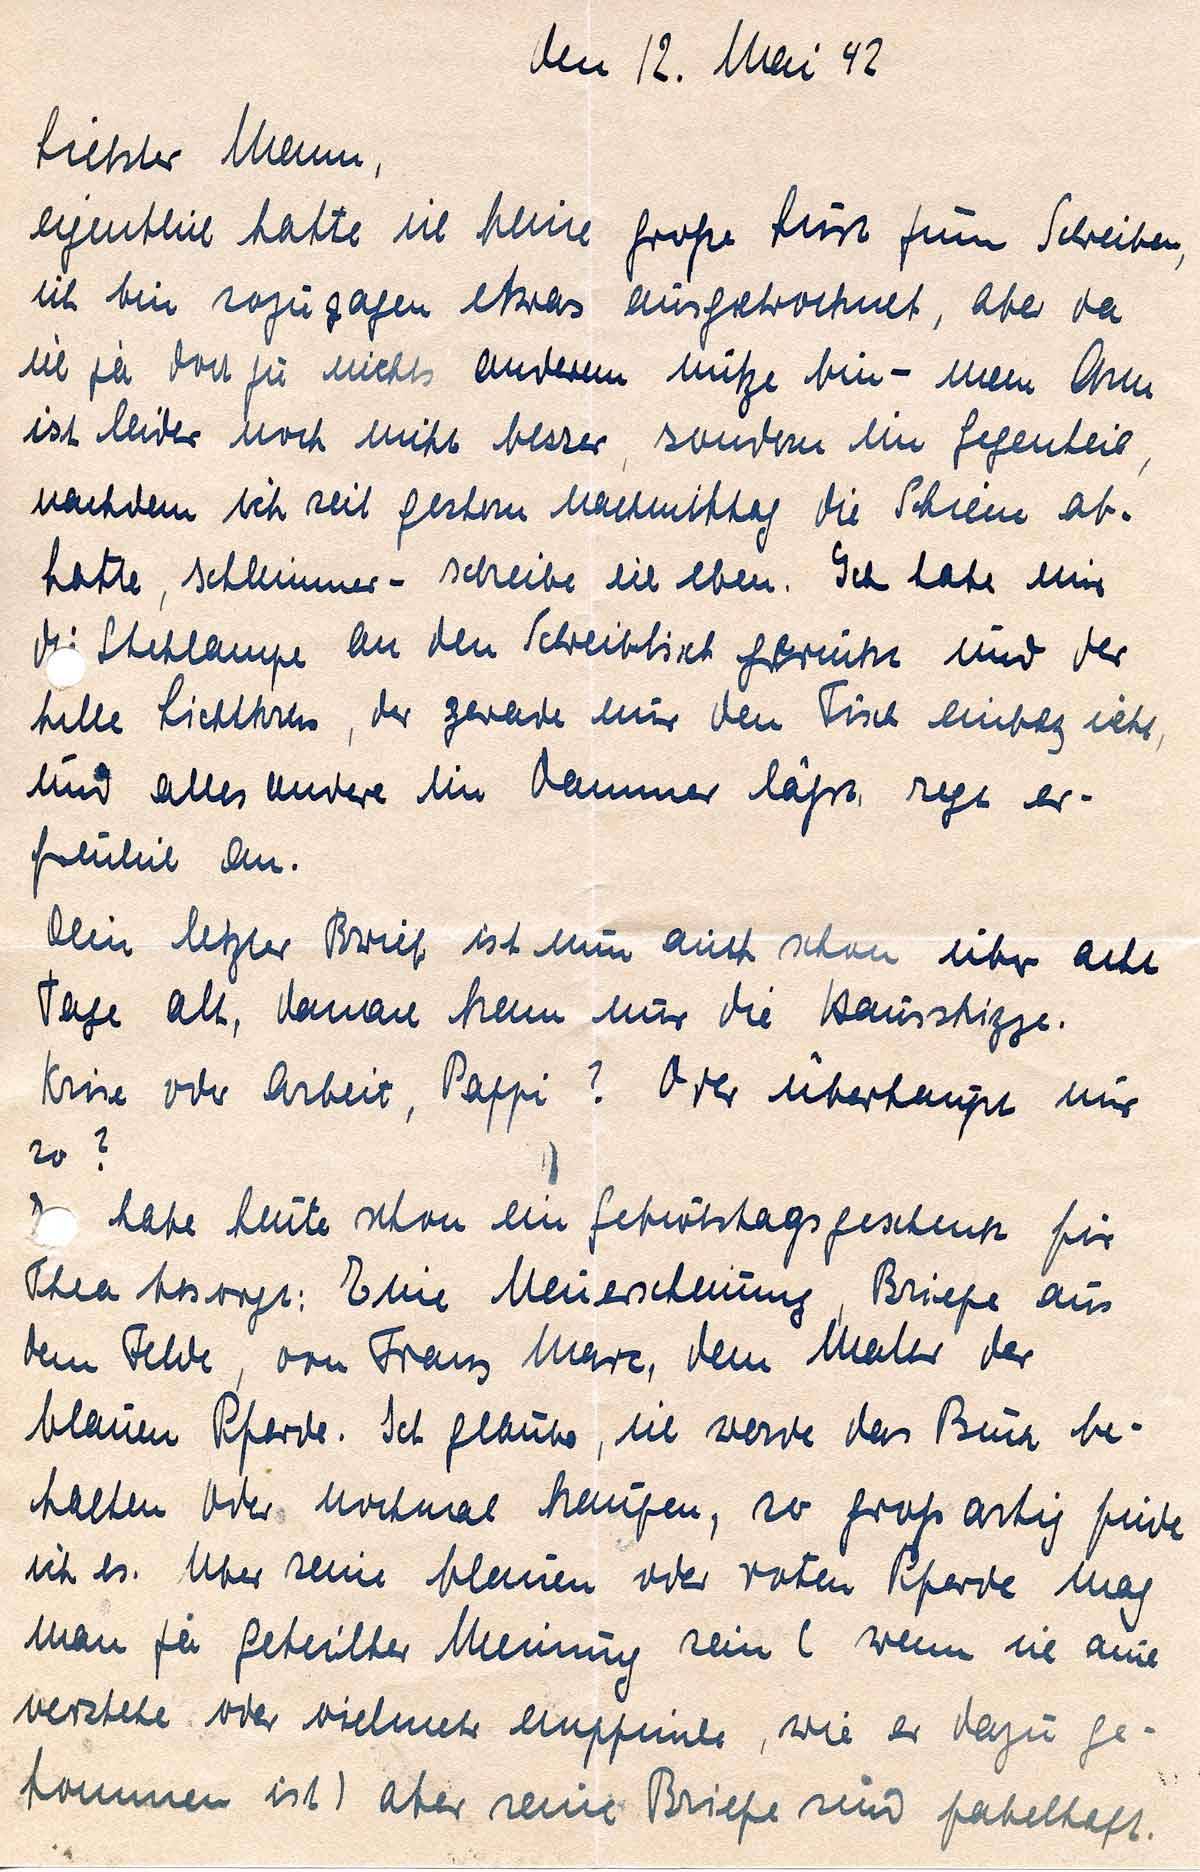 den 12. Mai 42
Liebster Mann,
eigentlich hatte ich keine große Lust zum Schreiben,
ich bin sozuzagen etwas ausgetrocknet, aber da
ich ja doch zu nichts anderem nütze bin – mein Arm
ist leider noch nicht besser, sondern im Gegenteil,
nachdem ich seit gestern Nachmittag die Schiene ab-
hatte, schlimmer – schreibe ich eben. Ich habe mir
die Stehlampe an den Schreibtisch gerückt und der
helle Lichtkreis, der gerade nur den Tisch einbezieht,
und alles andere im Dämmer läßt, regt er-
freulich an.
Dein letzter Brief ist nun auch schon über acht
Tage alt, danach kam nur die Hausskizze.
Krise oder Arbeit, Pappi? Oder überhaupt nur
so?
habe heute schon ein Geburtstagsgeschenk für
Thea besorgt: Eine Neuerscheinung, Briefe aus
dem Felde, von Franz Marc, dem Maler der
blauen Pferde. Ich glaube, ich werde das Buch be-
halten oder nochmal kaufen, so großartig finde
ich es. Über seine blauen oder roten Pferde mag
man ja geteilter Meinung sein (wenn ich auch
verstehe oder vielmehr empfinde, wie er dazu ge-
kommen ist) aber seine Briefe sind fabelhaft.